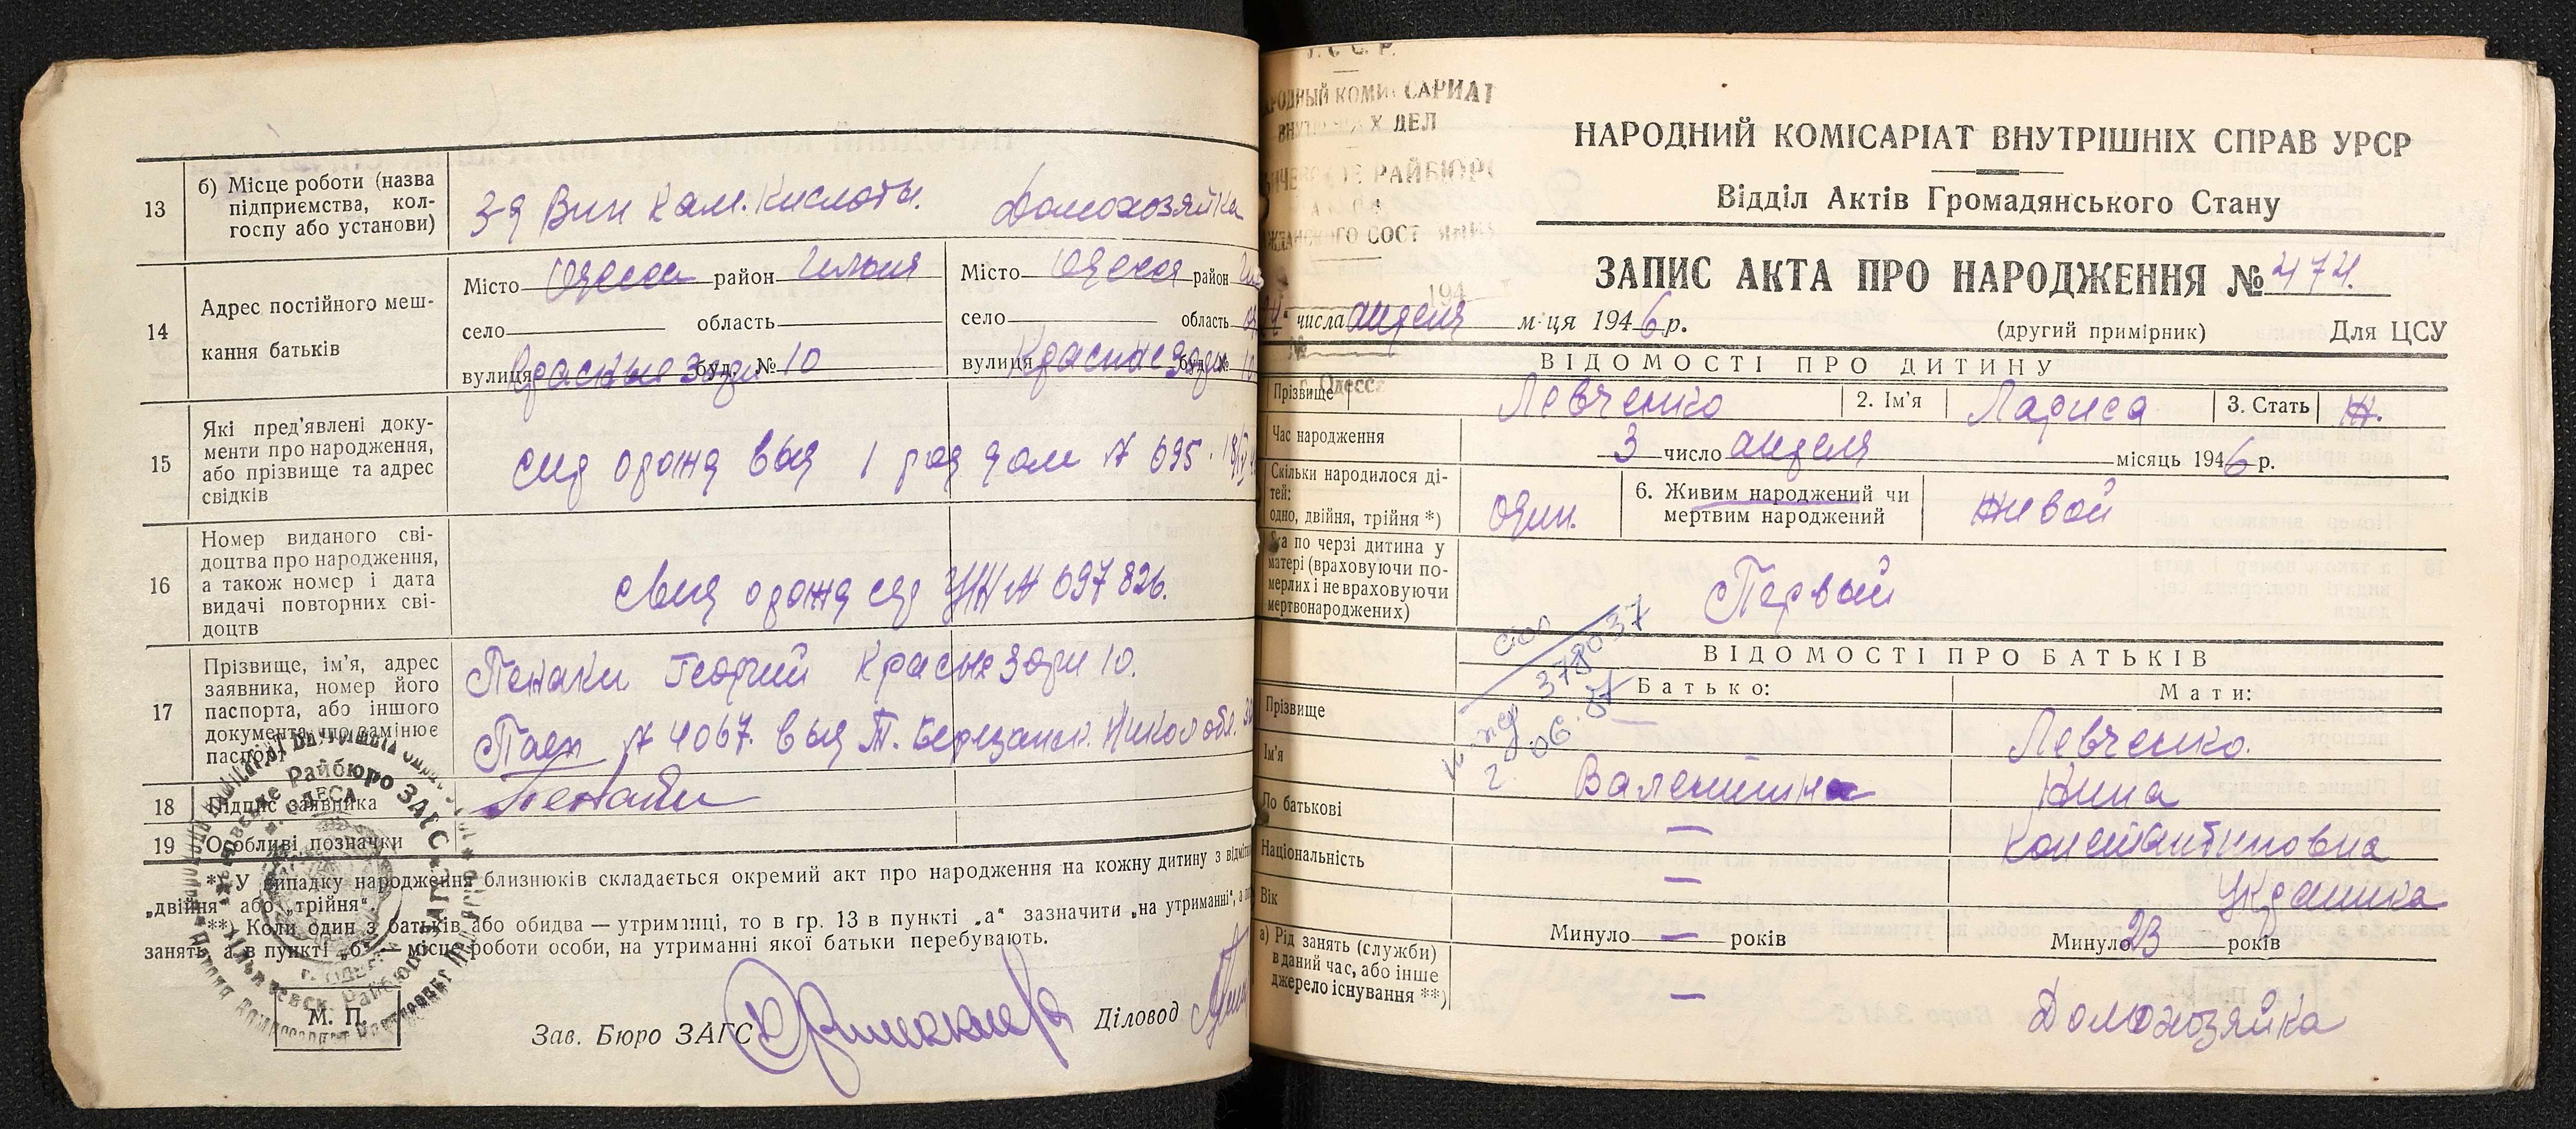 13
б) Місце роботи (назва
підприємства, кол-
госпу або установи)
3-д Вин Кам. Кислоты.
Домохозяйка
14
Адрес постійного меш-
кання батьків
Місто Одесса район Ильич
село область
вулиця Красные Зори буд. № 10
Місто Одесса район
село область
вулиця Красные Зори буд. № 10
15
Які пред'явлені доку-
менти про народження,
або прізвище та адрес
свідків
о рожд выд 1 род дом № 695.
16
Номер виданого сві-
доцтва про народження,
а також номер і дата
видачі повторних сві-
доцтв
свид о рожд № 697826.
17
Прізвище, ім'я, адрес
заявника, номер його
паспорта, або іншого
документа, що замінює
паспорт
Пенаки Георгий Красные Зори 10.
Пасп № 4067. выд
18
Підпис заявника
19
Особливі позначки
*) У випадку народження близнюків складається окремий акт про народження на кожну дитину з
„двійня" або „трійня".
**) Коли один з батьків або обидва — утриманці, то в гр. 13 в пункті „а" зазначити „на утриманні", а
занять, а в пункті „б" — місце роботи особи, на утриманні якої батьки перебувають.
М. П.
Зав. Бюро ЗАГС
Діловод
НАРОДНИЙ КОМІСАРІАТ ВНУТРІШНІХ СПРАВ УРСР
Відділ Актів Громадянського Стану
ЗАПИС АКТА ПРО НАРОДЖЕННЯ № 474.
числа апреля м-ця 1946 р.
(другий примірник)
Для ЦСУ
ВІДОМОСТІ ПРО ДИТИНУ
Прізвище Левченко 2. Ім'я Лариса 3. Стать Ж.
Час народження
3 число апреля місяць 1946 р.
Скільки народилося ді-
тей:
одно, двійня, трійня *)
Один.
6. Живим народжений чи
мертвим народжений
Живой
Яка по черзі дитина у
матері (враховуючи по-
мерлих і не враховуючи
мертвонароджених)
Первый
378037
ВІДОМОСТІ ПРО БАТЬКІВ
Батько:
Мати:
Прізвище — Левченко.
Ім'я Валентина Нина
По батькові — Константиновна
Національність — Украинка
Вік Минуло — років Минуло 23 років
а) Рід занять (служби)
в даний час, або інше
джерело існування **)
—
Домохозяйка